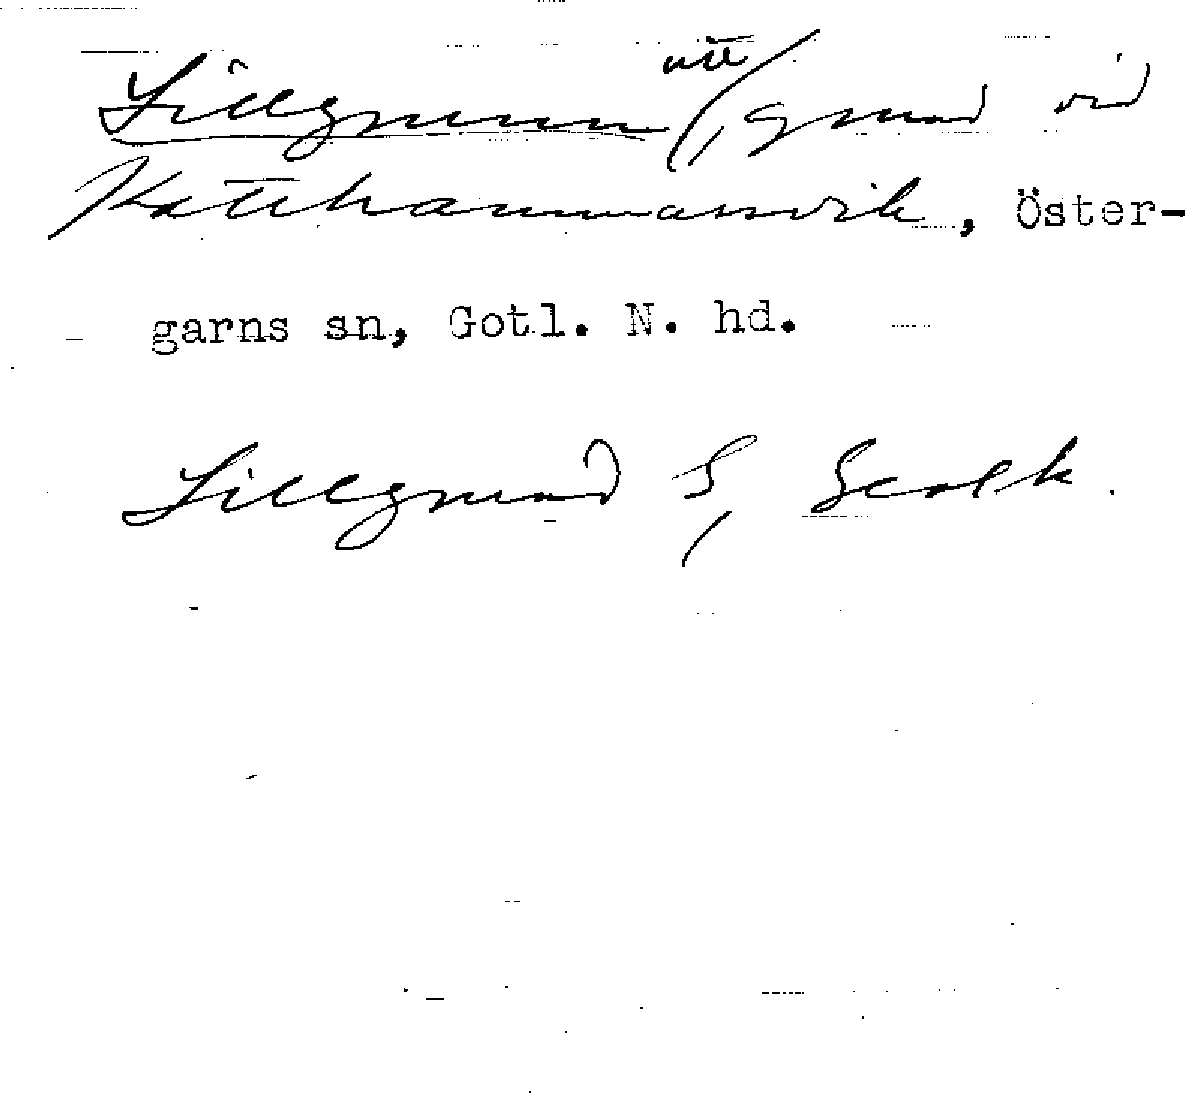 Lillgrunn, grund vid
Katthammarsvik, Öster-
garns sn, Gotl. N. hd.
Lillgrund S,